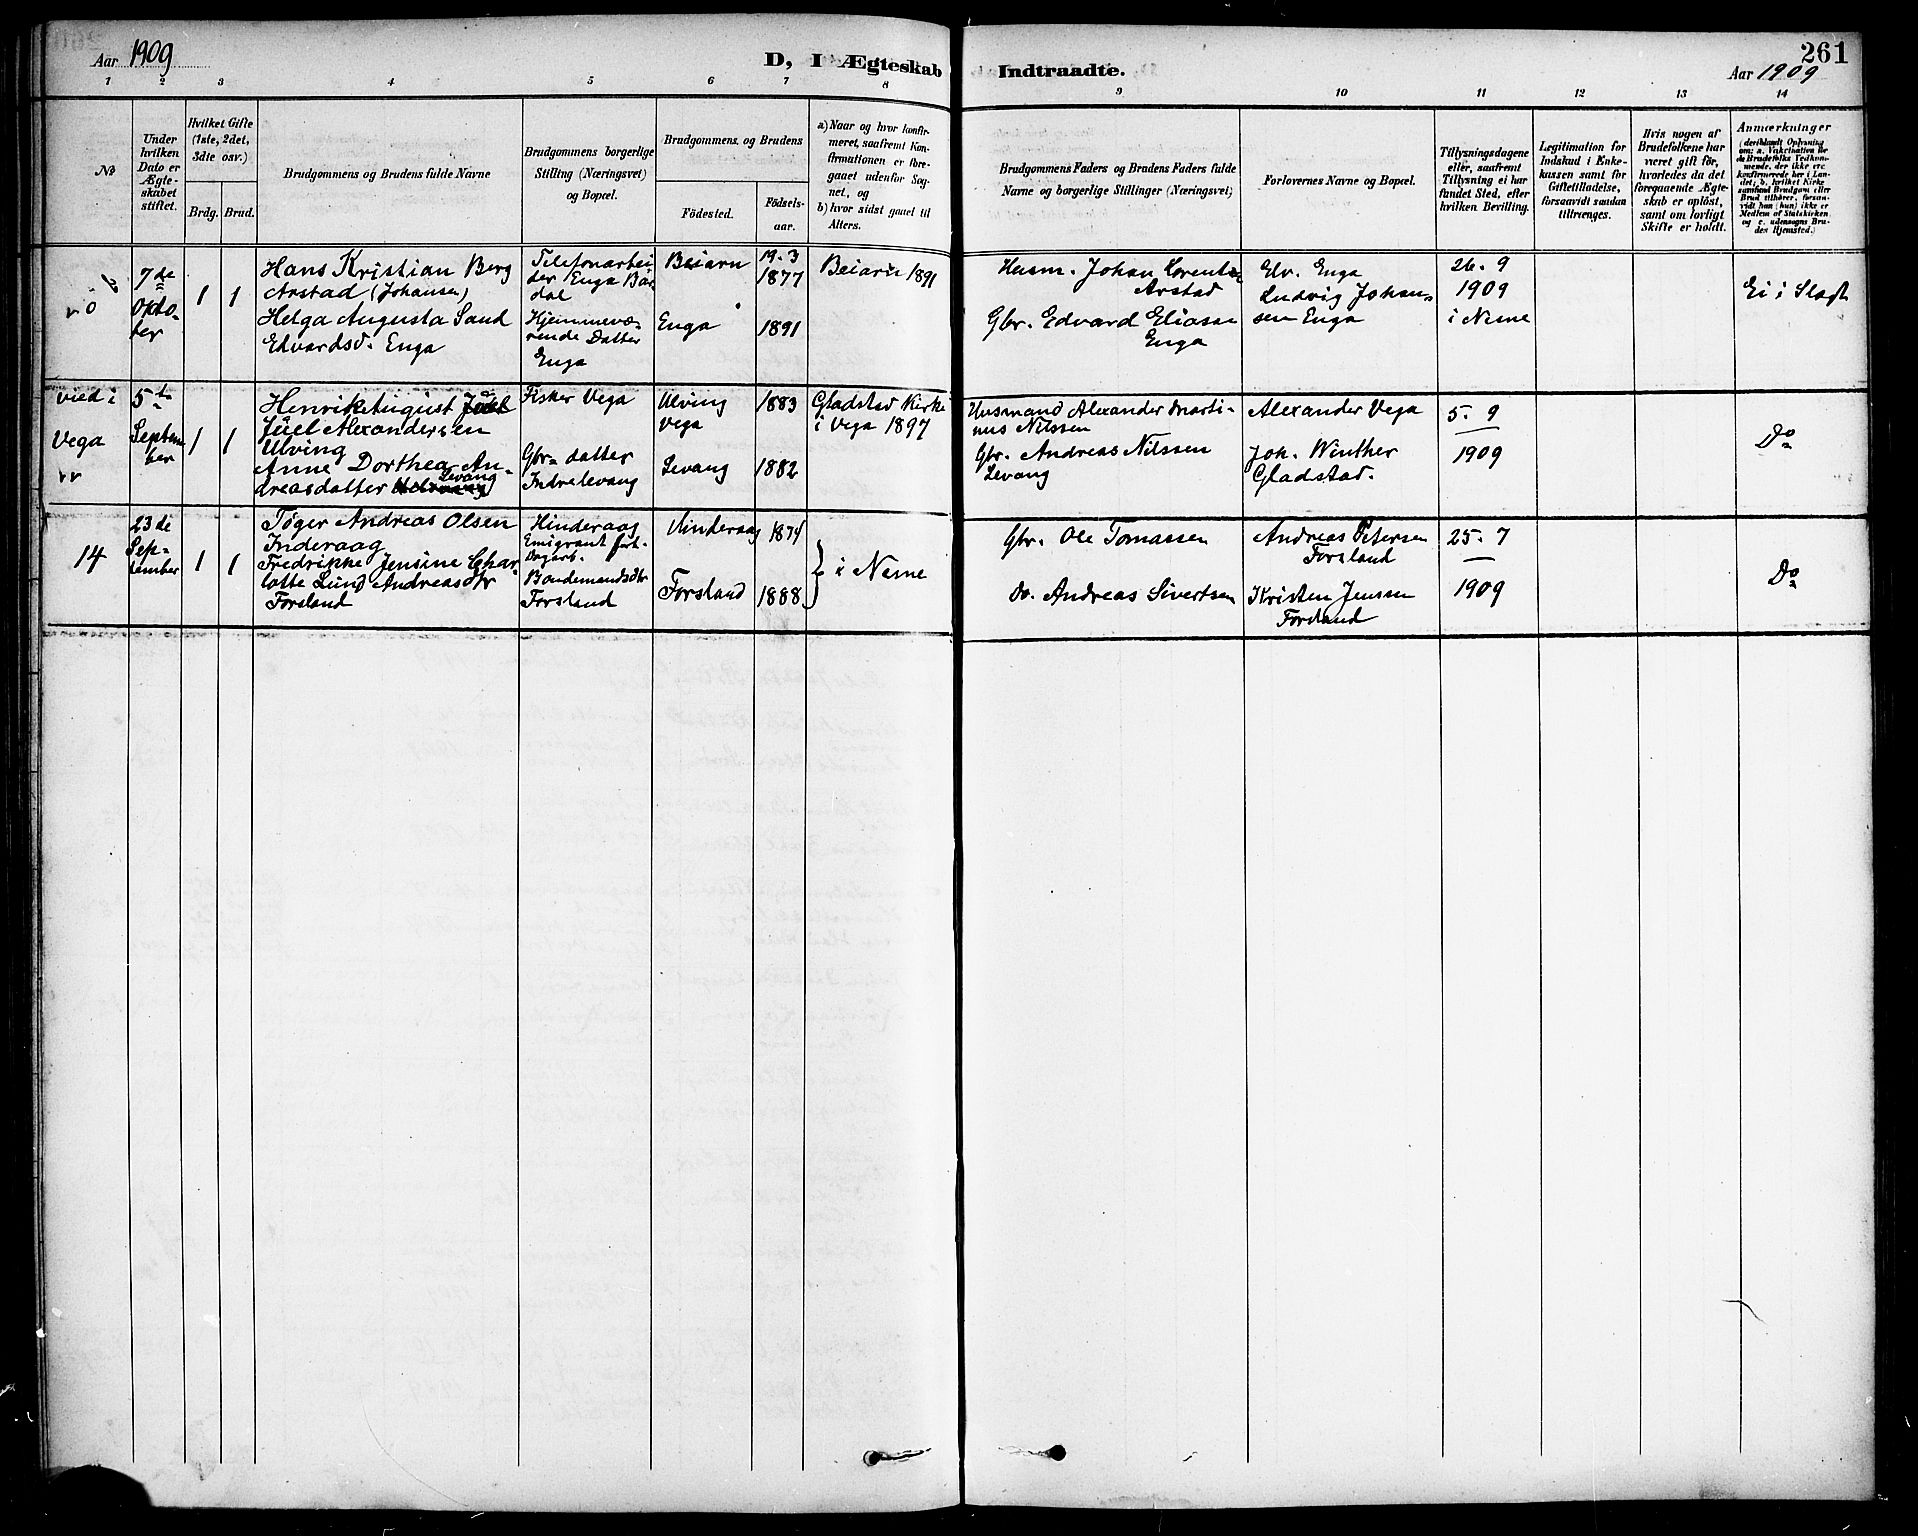 Aar 1909
D, I Ægteskab
Indtraadte.
261
Aar 1909
1 2 3 4 5 6 7 8 9 10 11 12 13 14
No
Under
hvilken
Dato er
Ægte-
skabet
stiftet.
Hvilket Gifte
(1ste, 2det,
3die osv.)
Brdg. Brud.
Brudgommens og Brudens fulde Navne
Brudgommens borgerlige
Stilling (Næringsvei)
og Bopæl.
Brudgommens og Brudens
Fødested.
Fødsels-
aar.
a) Naar og hvor konfir-
meret, saafremt Kon-
firmationen er fore-
gaaet udenfor Sog-
net, og
b) hvor sidst gaaet til
Alters.
Brudgommens Faders og Brudens Faders fulde
Navne og borgerlige Stillinger (Næringsvei)
Forlovernes Navne og Bopæl.
Tillysningsdagene
eller, saafremt
Tillysning ei har
fundet Sted, efter
hvilken Bevilling.
Legitimation for
Indskud i Enke-
kassen samt for
Giftetilladelse,
forsaavidt saadan
tiltrænges.
Hvis nogen af
Brudefolkene har
været gift før,
hvorledes da det
foregaaende Ægte-
skab er opløst,
samt om lovligt
Skifte er holdt.
Anmærkninger
(deriblandt Oplysning
om: a. Vakcination for
de Brudefolks Vedkom-
mende, der ikke ere
konfirmerede her i Lan-
det; b. hvilket Kirke-
samfund Brudgom eller
Brud tilhører, forsaa-
vidt han (hun) ikke er
Medlem af Statskirken,
og c. udensogns Bru-
des Hjemsted.)
7de
Okto-
ber
1 1
Hans Kristian Berg
Arstad (Johansen)
Helga Augusta Sand
Edvardsd. Enga
Telefonarbei
der Enga Bar
dal
Hjemmevæ-
rende Datter
Enga
Beiarn
Enga
19-3
1877
1891
Beiarn 1891
Husm. Johan Lorents
Arstad
Gbr. Edvard Eliassen
Enga
Elv. Enga
Ludvig Johan-
sen Enga
26-9
1909
i Nesne
Ei i Slægt
Vied i
Vega
5te
Septem
ber
1 1
Henrik August
Juel Alexandersen
Ulving
Anne Dorthea An-
dreasdatter Levang
Fisker Vega
Gbr. datter
Indre levang
Ulving
Vega
Levang
1883
1882
Gladstad Kirke
i Vega 1897
Husmand Alexander Marti-
nus Nilssen
Gbr. Andreas Nilssen
Levang
Alexander Vega
Joh. Winther
Gladstad.
5-9
1909
Do
14
23de
Sep-
tember
1 1
Tøger Andreas Olsen
Inderaag
Fredrikke Jensine Char
lotte Lund Andreasdtr
Forsland
Hinderaag
Emigrant fort.
Dagarb.
Bondemandsdtr
Forsland
Hinderaag
Forsland
1874
1888
i Nesne
Gbr. Ole Tomassen
do. Andreas Sivertsen
Andreas Petersen
Forsland
Kristen Jenssen
Forsland
25-7
1909
Do